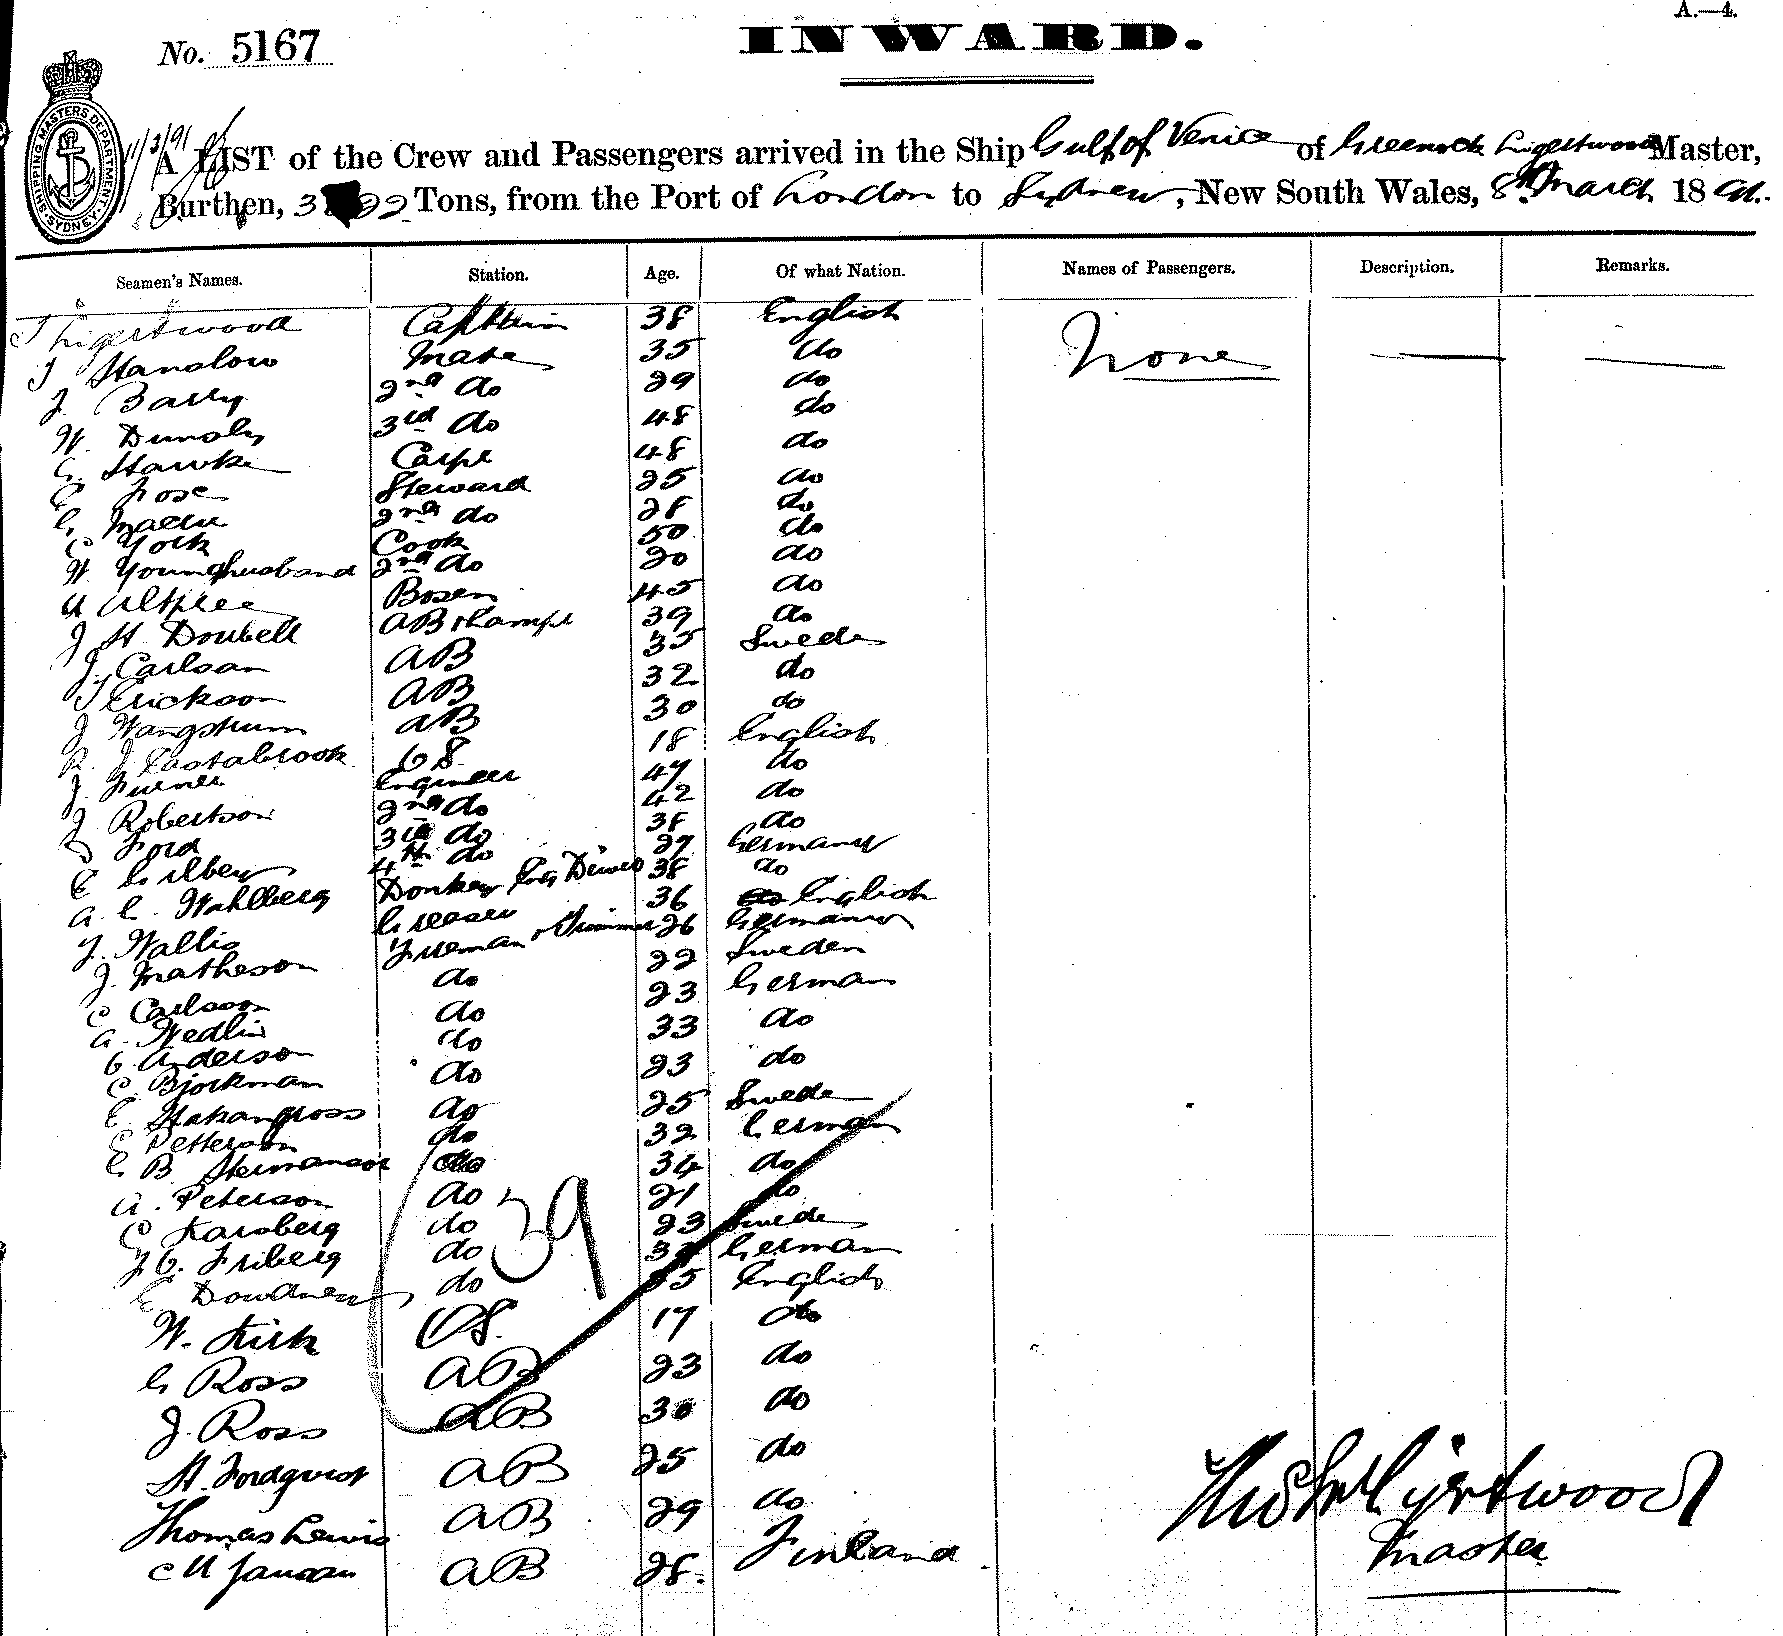 A.—4.
No. 5167
INWARD.
SHIPPING MASTERS DEPARTMENT SYDNEY
A LIST of the Crew and Passengers arrived in the Ship Gulf of Venice of Greenock Ligertwood Master,
Burthen, Tons, from the Port of London to Sydney, New South Wales, 8th March 1891.
Seamen's Names. Station. Age. Of what Nation. Names of Passengers. Description. Remarks.
T Ligertwood Captain 38 English None
J Hanslow Mate 35 do
J. Barry 2nd do 29 do
W. Dunsby 3rd do 48 do
G. Hawke Carpt 48 do
Steward 25 do
G. 2nd do 28 do
C York Cook 50 do
W Younghusband 2nd do 20 do
Bosen 45 do
J H Doubell AB & Lampt 39 do
J. Carlson AB 35 Swede
J Erickson AB 32 do
J Wangstrum AB 30 do
R. J Eastabrook OS 18 English
J. Turner Engineer 47 do
J Robertson 2nd do 42 do
J Ford 3rd do 38 do
E Gilbey 4th do 29 Germany
A. C. Wahlberg Donkey Eng Driver 38 do
J. Wallis Greaser 36 English
J. Matheson Fireman & Trimmer 26 Germany
C Carlson do 22 Sweden
A. Hedlin do 23 German
O. Anderson do 33 do
C Bjorkman do 23 do
E do 25 Swede
C Petterson do 32 German
G B Hermanson do 34 do
A. Peterson do 21 do
C Karsberg do 23 Swede
J O. Friberg do German
E Downey do 25 English
W. Kirk OS. 17 do
G Ross AB 23 do
J. Ross AB 30 do
H. Nordqvist AB 25 do
Thomas Lewis AB 29 do
C A Jansan AB 28. Finland
39
Thos Ligertwood
Master